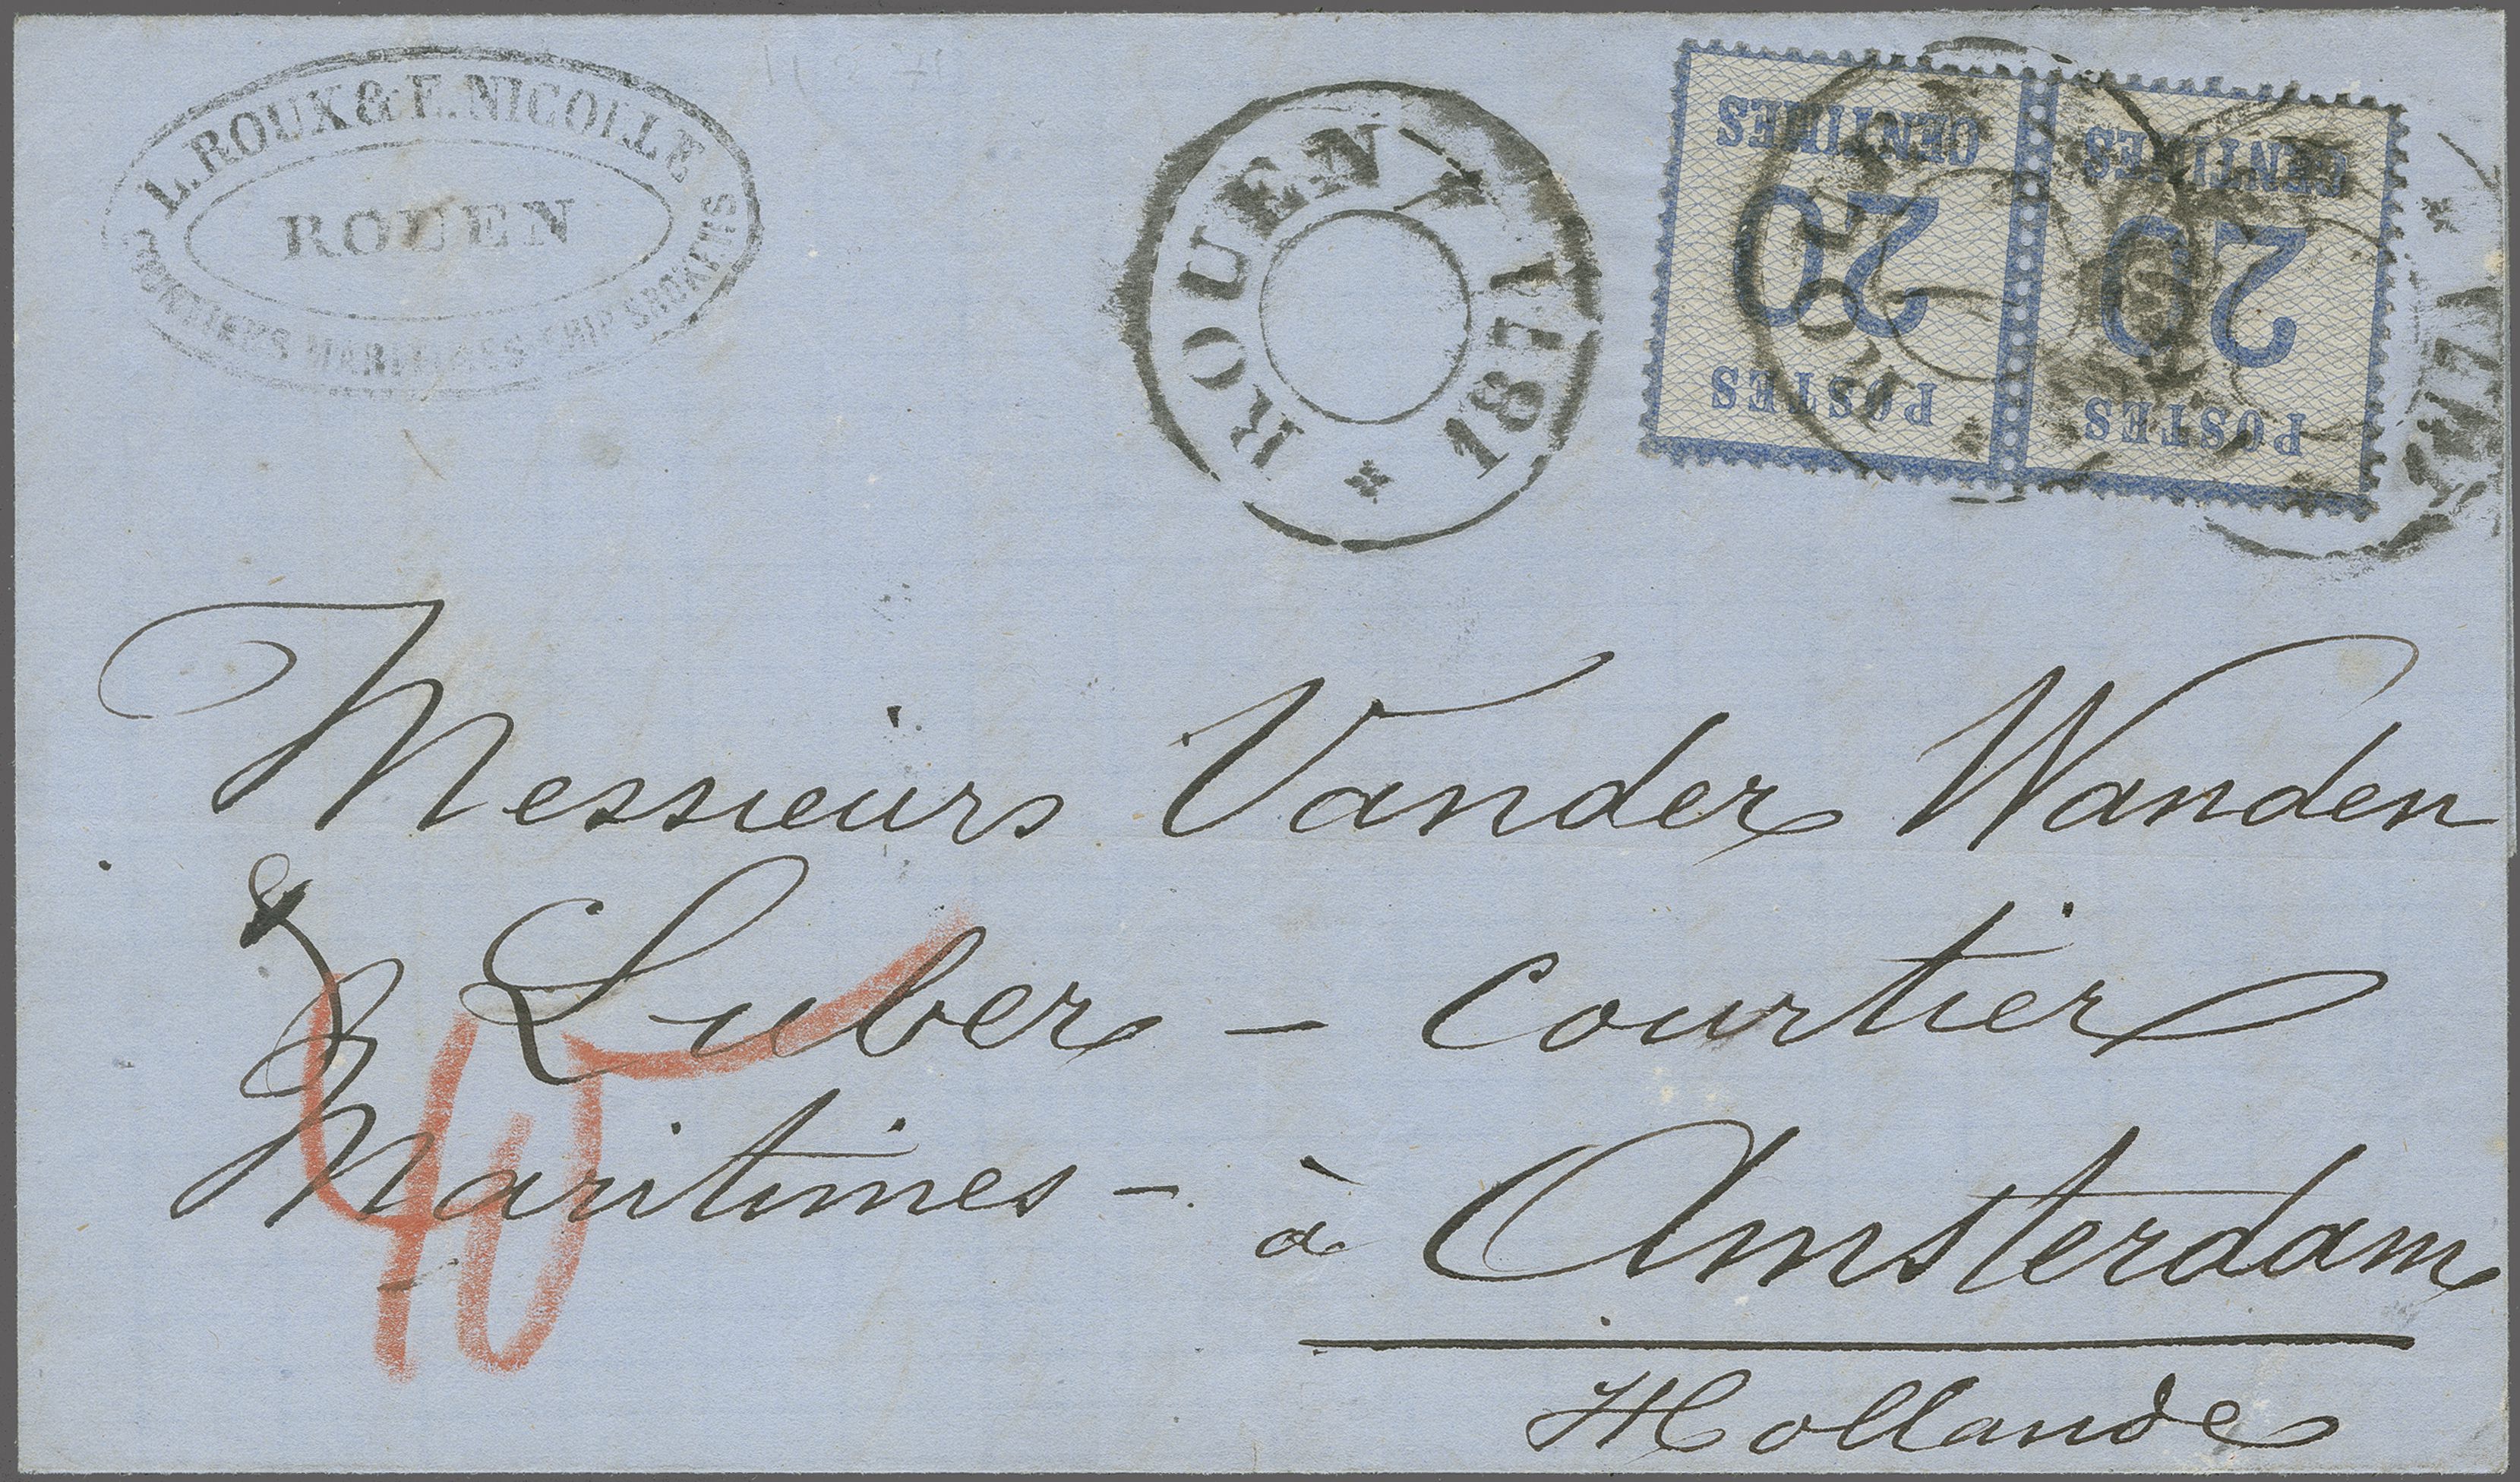 L. ROUX & E. NICOLLE
ROUEN
MARITIMES SHIP BROKERS
ROUEN
1871
CENTIMES
20
POSTES
CENTIMES
20
POSTES
Messieurs Vander Wanden
& Luber - Courtier
Maritimes -
à Amsterdam
Hollande
40